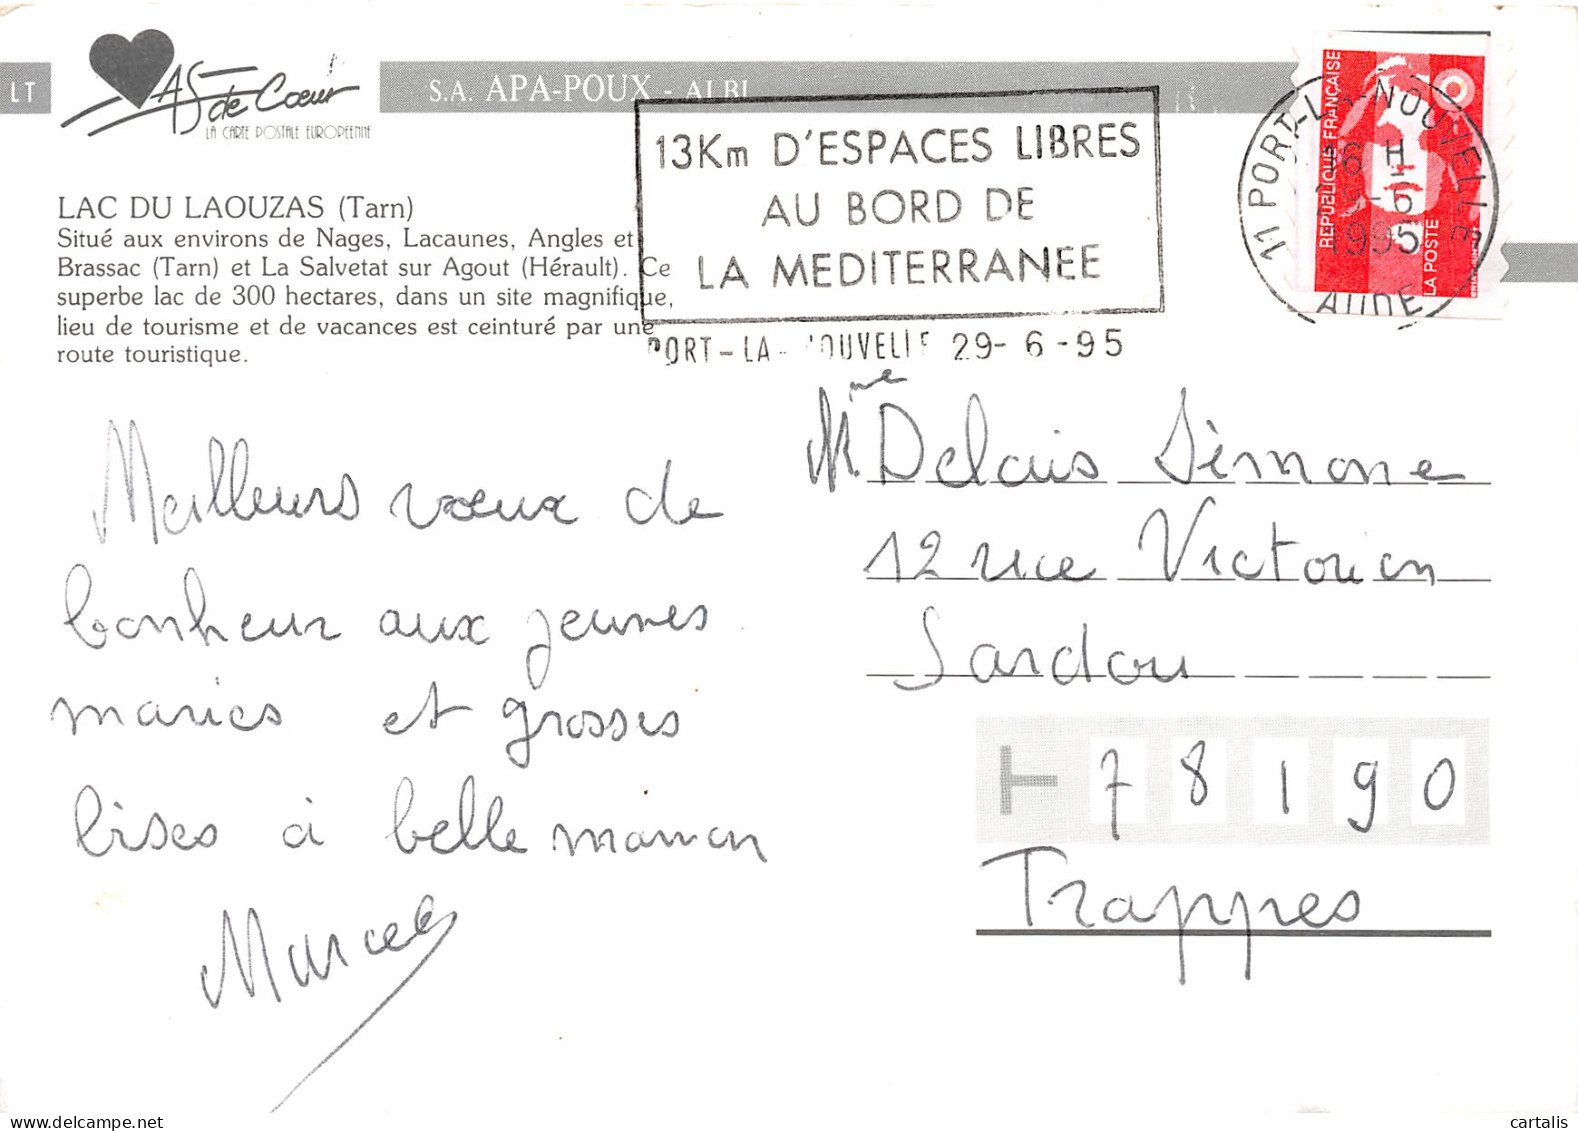 LT
AS de Cœur
LA CARTE POSTALE EUROPEENNE
S.A. APA-POUX - ALBI
LAC DU LAOUZAS (Tarn)
Situé aux environs de Nages, Lacaunes, Angles et
Brassac (Tarn) et La Salvetat sur Agout (Hérault). Ce
superbe lac de 300 hectares, dans un site magnifique,
lieu de tourisme et de vacances est ceinturé par une
route touristique.
13Km D'ESPACES LIBRES
AU BORD DE
LA MEDITERRANEE
PORT-LA-NOUVELLE 29-6-95
11 PORT-LA-NOUVELLE
16 H
29-6
1995
AUDE
REPUBLIQUE FRANÇAISE
LA POSTE
Meilleurs vœux de
bonheur aux jeunes
maries et grosses
bises à belle maman
Marcel
Mme Delais Simone
12 rue Victorien
Sardou
78190
Trappes
delcampe.net
cartalis